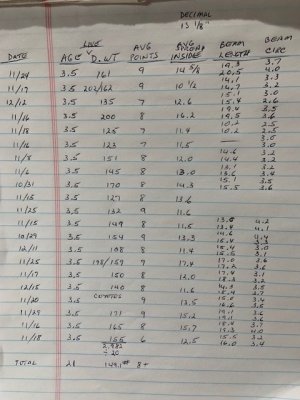 DECIMAL
13 1/8"
LIVE AVG AVG SPREAD BEAM BEAM
DATE AGE D.WT POINTS INSIDE LENGTH CIRC
19.3 3.7
11/24 3.5 161 9 14 5/8 20.5 4.0
14.1 3.3
11/17 3.5 202/162 9 10 1/2 14.7 3.2
15.1 3.0
12/12 3.5 135 7 12.6 15.4 2.6
19.4 3.5
11/16 3.5 200 8 16.2 19.5 3.6
10.2 2.5
11/18 3.5 125 7 11.4 10.2 2.5
3.0
11/16 3.5 123 7 11.5 3.0
14.6 3.2
11/8 3.5 151 8 12.0 14.4 3.2
13.1 3.2
11/6 3.5 145 8 13.0 13.6 3.4
15.1 3.5
10/31 3.5 170 8 14.3 15.5 3.6
11/15 3.5 127 8 13.6
11/25 3.5 132 9 11.6
13.0 4.2
11/15 3.5 149 8 11.5 13.4 4.1
10/29 3.5 154 9 13.3 4.4
12/11 3.5 108 8 11.4 15.4 3.0
15.5 3.1
11/25 3.5 198/159 7 17.4 17.0 3.6
17.2 3.6
11/17 3.5 150 8 12.0 17.4 3.1
18.3 3.2
12/15 3.5 140 8 11.6 3.5
11/20 3.5 COYOTES 9 13.5 3.4
11/29 3.5 171 9 15.2 19.1 3.6
19.1 3.6
11/16 3.5 165 8 15.7 18.4 3.7
19.3 4.0
11/18 3.5 155 6 12.5 15.5 3.2
16.0 3.4
2,982
÷ 20
TOTAL 21 149.1# 8+